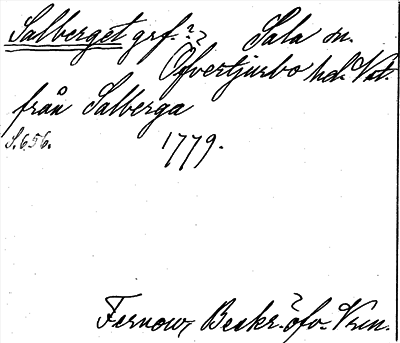 Salberget grf. ? ? Sala sn.
Öfvertjurbo hd. Vstm.
från Salberga
S. 656. 1779.
Fernow, Beskr. öfv. Vrm.